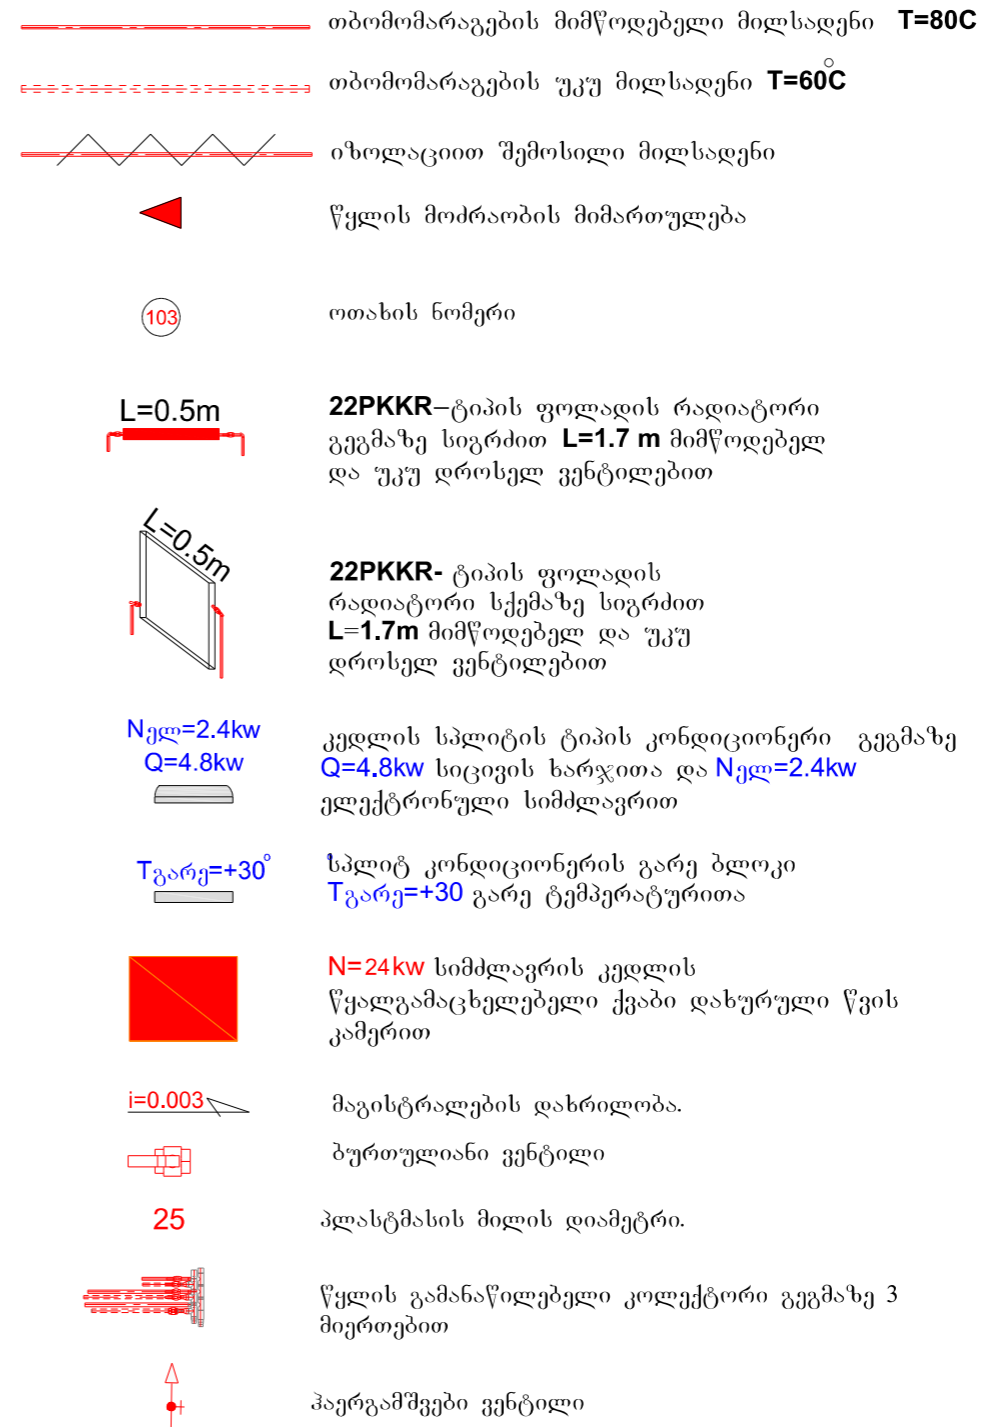 თბომომარაგების მიმწოდებელი მილსადენი T=80C
თბომომარაგების უკუ მილსადენი T=60°C
იზოლაციით შემოსილი მილსადენი
წყლის მოძრაობის მიმართულება
103
ოთახის ნომერი
L=0.5m
22PKKR–ტიპის ფოლადის რადიატორი
გეგმაზე სიგრძით L=1.7 m მიმწოდებელ
და უკუ დროსელ ვენტილებით
L=0.5m
22PKKR- ტიპის ფოლადის
რადიატორი სქემაზე სიგრძით
L=1.7m მიმწოდებელ და უკუ
დროსელ ვენტილებით
Nელ=2.4kw
Q=4.8kw
კედლის სპლიტის ტიპის კონდიციონერი გეგმაზე
Q=4.8kw სიცივის ხარჯითა და Nელ=2.4kw
ელექტრონული სიმძლავრით
Tგარე=+30°
სპლიტ კონდიციონერის გარე ბლოკი
Tგარე=+30 გარე ტემპერატურითა
N=24kw სიმძლავრის კედლის
წყალგამაცხელებელი ქვაბი დახურული წვის
კამერით
i=0.003
მაგისტრალების დახრილობა.
ბურთულიანი ვენტილი
25
პლასტმასის მილის დიამეტრი.
წყლის გამანაწილებელი კოლექტორი გეგმაზე 3
მიერთებით
ჰაერგამშვები ვენტილი